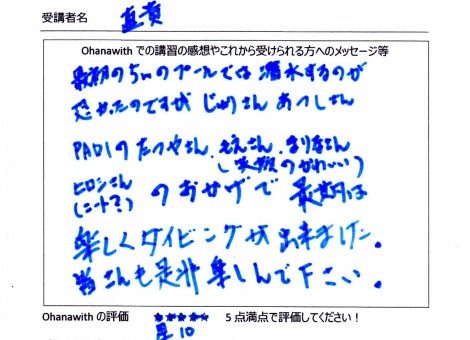 受講者名 直貴
Ohanawith での講習の感想やこれから受けられる方へのメッセージ等
最初の5mのプールでは潜水するのが
恐かったのですが じゅりさん あつしさん
PADIのたつやさん、ももえさん、まりなさん
(笑顔のかわいい)
ヒロシさん のおかげで 最期は
(ニート?)
楽しくダイビングが出来ました。
皆さんも是非楽しんで下さい。
Ohanawith の評価 ★★★★★ 5 点満点で評価してください！
星10